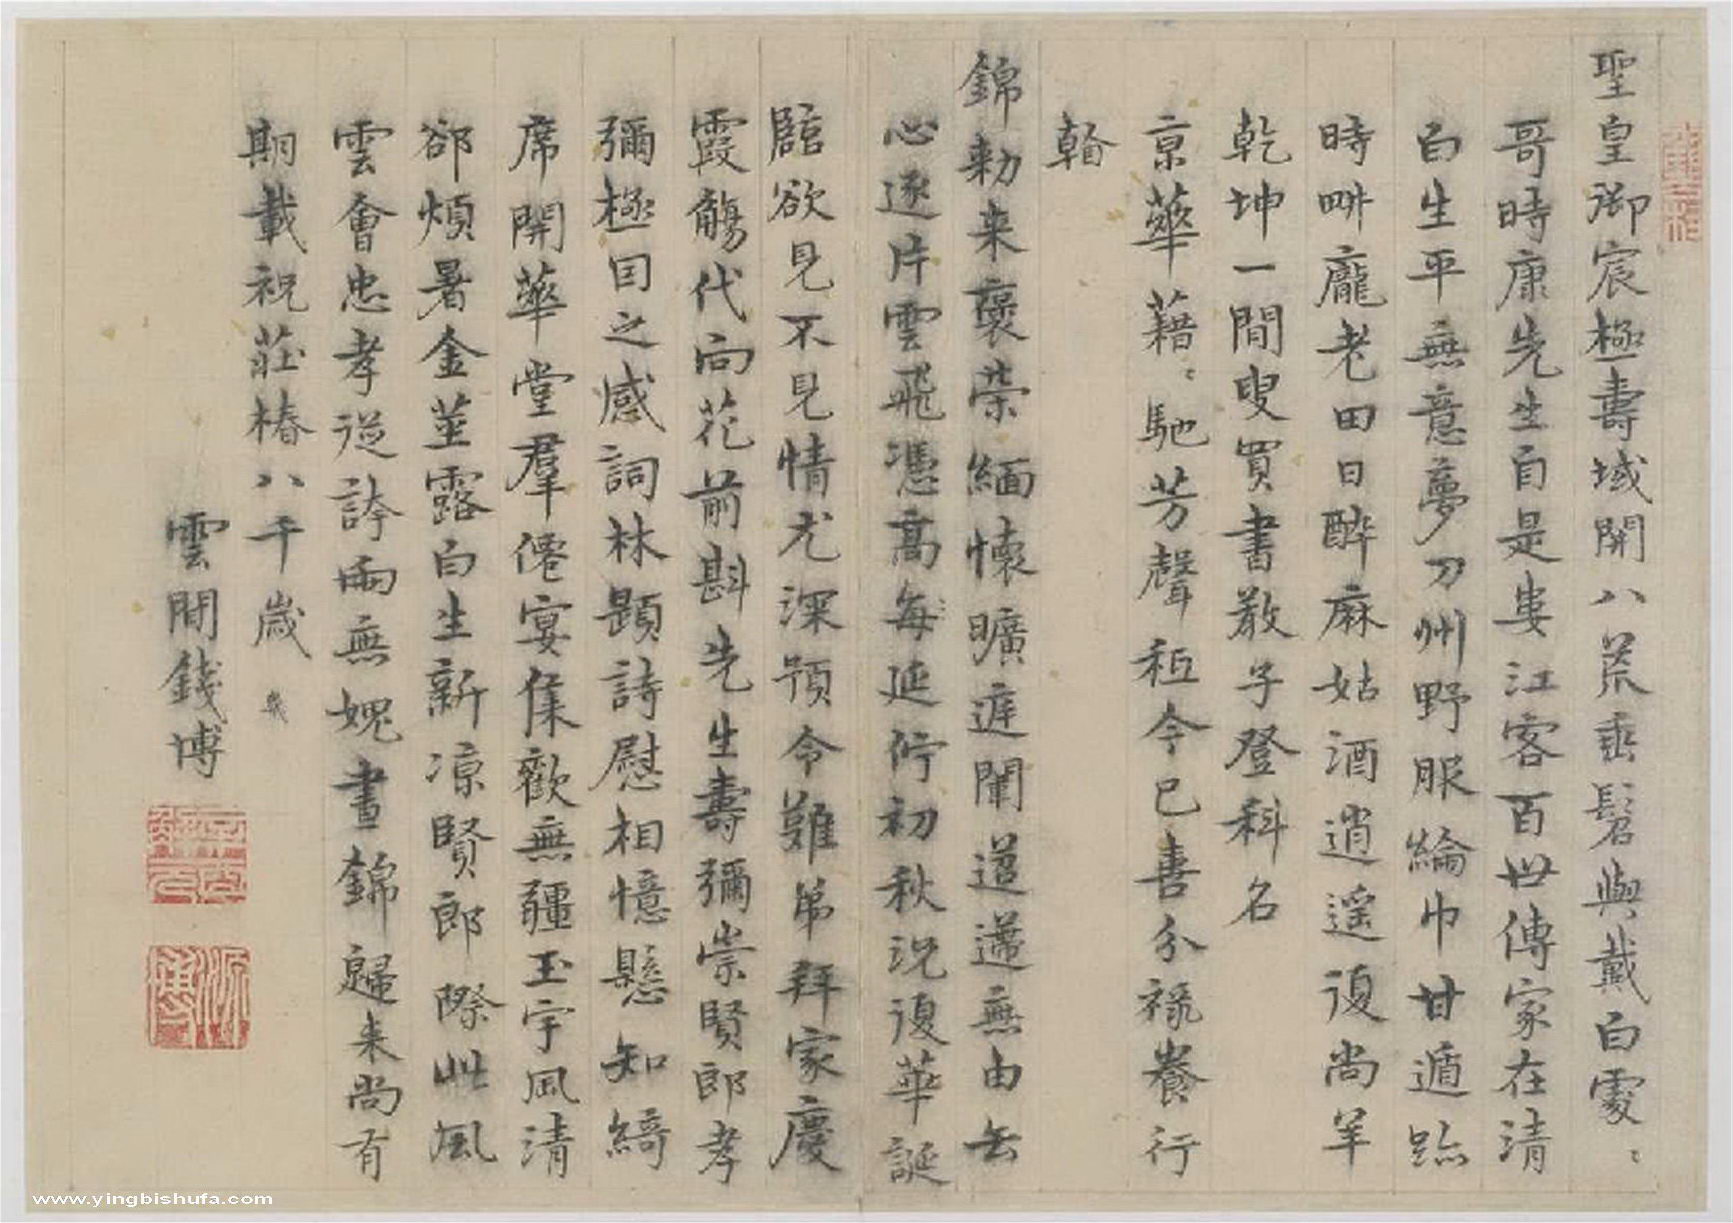 聖皇御宸極壽域開八荒垂髫與戴白處〻
哥時康先生自是婁江客百世傳家在清
白生平無意夢刀州野服綸巾甘遁跡
時畊龐老田日醉麻姑酒逍遥復尚羊
乾坤一閒叟買書教子登科名
京華藉〻馳芳聲秪今已喜分祿養行
看
錦勑来褒荣緬懷曠遊闡道邁無由缶
心逐片雲飛憑高每延佇初秋況復華誕
臨欲見不見情尤深預令難弟拜家慶
霞觴代向花前斟先生壽彌崇賢郎孝
彌極因之感詞林題詩慰相憶懸知綺
席開華堂羣僊宴集歡無疆玉宇風清
郤煩暑金莖露白生新凉賢郎際此風
雲會忠孝從誇兩無媿晝錦歸来尚有
期載祝莊椿八千歲
雲間錢博
www.yingbishufa.com